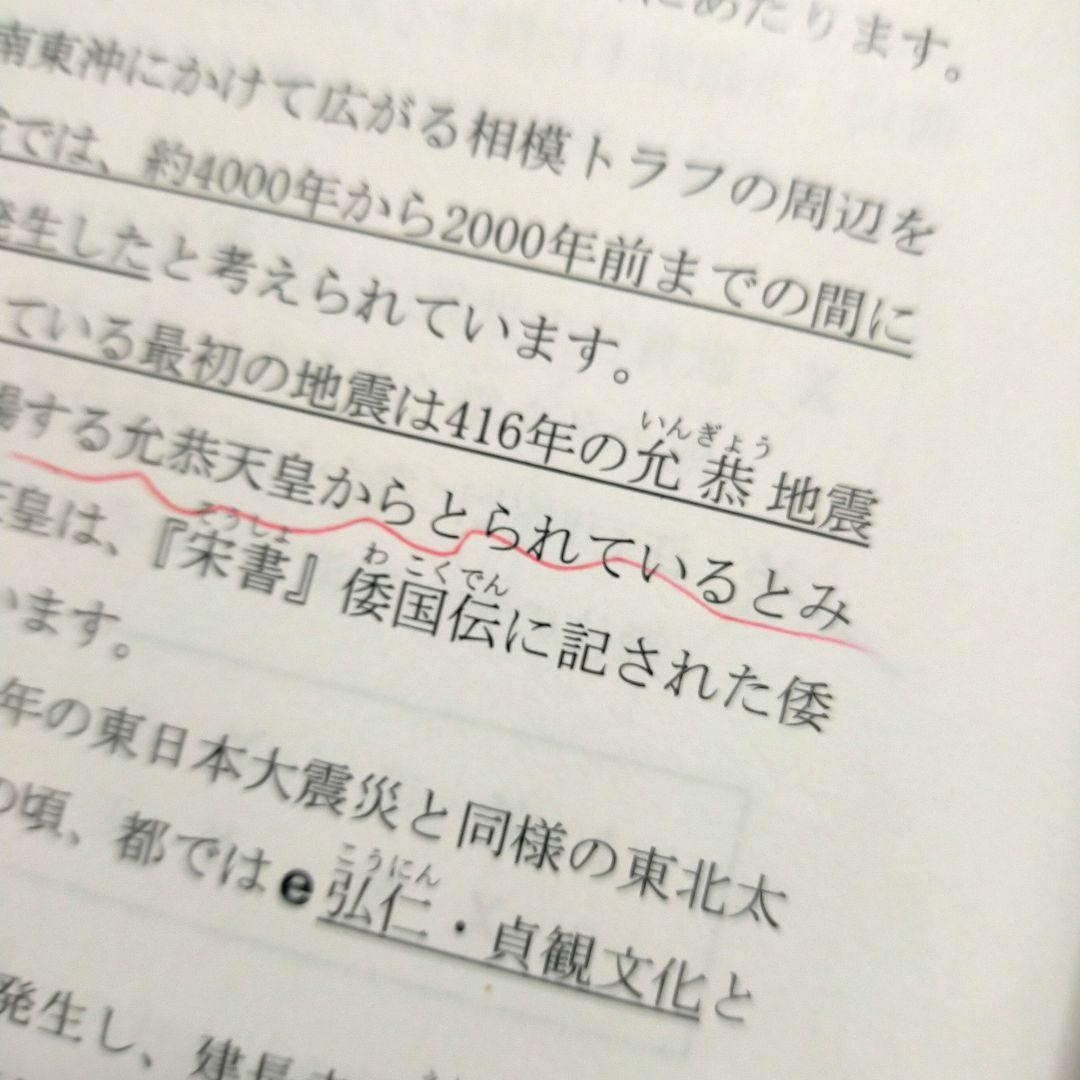 にあたります。
南東沖にかけて広がる相模トラフの周辺を
では、約4000年から2000年前までの間に
発生したと考えられています。
ている最初の地震は416年の允恭地震
いんぎょう
場する允恭天皇からとられているとみ
天皇は、『宋書』倭国伝に記された倭
そうしょ
わこくでん
います。
年の東日本大震災と同様の東北太
の頃、都ではe弘仁・貞観文化と
こうにん
発生し、建長